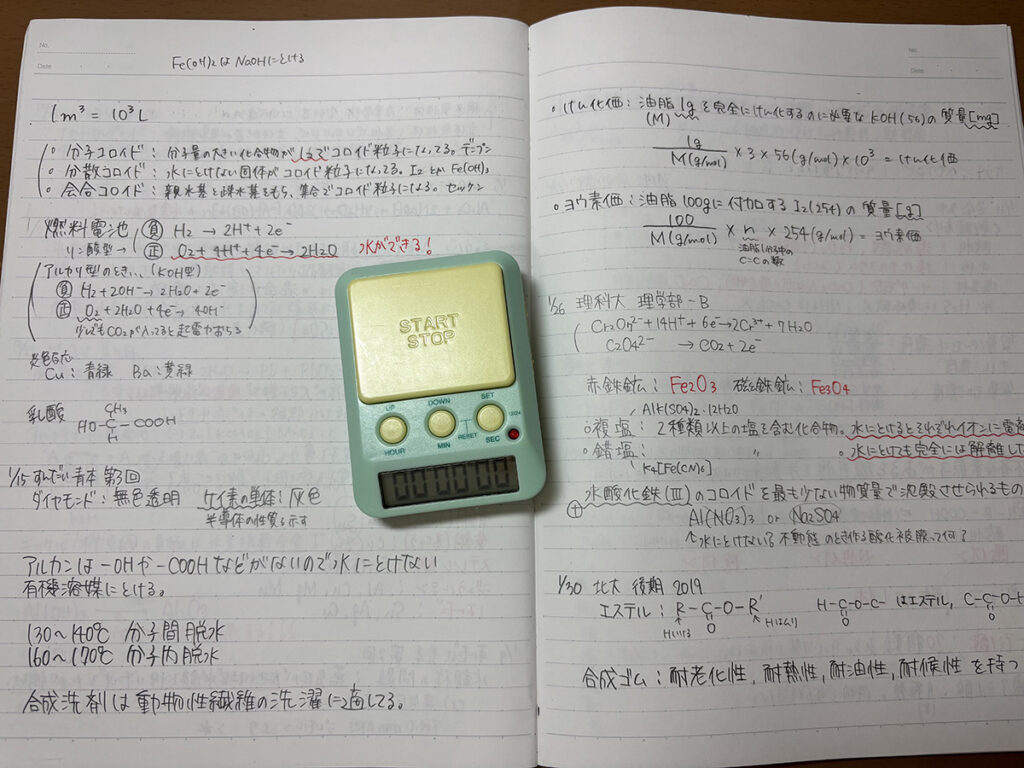 No.
Date
Fe(OH)2はNaOHにとける
1m³ = 10³L
○ 分子コロイド：分子量の大きい化合物が1分子でコロイド粒子になってる。デンプン
○ 分散コロイド：水にとけない固体がコロイド粒子になってる。I2とかFe(OH)3
○ 会合コロイド：親水基と疎水基をもち、集合でコロイド粒子になる。セッケン
燃料電池
リン酸型→
負 H2 → 2H⁺ + 2e⁻
正 O2 + 4H⁺ + 4e⁻ → 2H2O 水ができる！
アルカリ型のとき... (KOH型)
負 H2 + 2OH⁻ → 2H2O + 2e⁻
正 O2 + 2H2O + 4e⁻ → 4OH⁻
少しでもCO2が入ってると起電力おちる
炎色反応
Cu：青緑 Ba：黄緑
乳酸
CH3
HO-C-COOH
H
1/15 すんだい青本 第3回
ダイヤモンド：無色透明 ケイ素の単体：灰色
半導体の性質を示す
アルカンは-OHや-COOHなどがないので水にとけない
有機溶媒にとける。
130〜140℃ 分子間脱水
160〜170℃ 分子内脱水
合成洗剤は動物性繊維の洗濯に適してる。
START
STOP
UP
DOWN
SET
12/24
HOUR
MIN
RESET
SEC
00:00:00
No.
Date
○ けん化価：油脂1gを完全にけん化するのに必要なKOH(56)の質量[mg]
(M)
1g
M(g/mol) × 3 × 56(g/mol) × 10³ = けん化価
○ ヨウ素価：油脂100gに付加するI2(254)の質量[g]
100
M(g/mol) × n × 254(g/mol) = ヨウ素価
油脂1分子中の
C=Cの数
1/26 理科大 理学部-B
Cr2O7²⁻ + 14H⁺ + 6e⁻ → 2Cr³⁺ + 7H2O
C2O4²⁻ → CO2 + 2e⁻
赤鉄鉱：Fe2O3 磁鉄鉱：Fe3O4
AlK(SO4)2・12H2O
○複塩：2種類以上の塩を含む化合物。水にとけるとそれぞれイオンに電
○錯塩： 〃 。水にとけても完全には解離し
K4[Fe(CN)6]
水酸化鉄(Ⅲ)のコロイドを最も少ない物質量で沈殿させられるもの
+
Al(NO3)3 or Na2SO4
↑水にとけない？不動態のとき作る酸化被膜って何？
1/30 北大 後期 2019
エステル：R-C-O-R' H-C-O-C-はエステル, C-C-O-H
O O O
Hいける Hはムリ
合成ゴム：耐老化性, 耐熱性, 耐油性, 耐候性を持つ